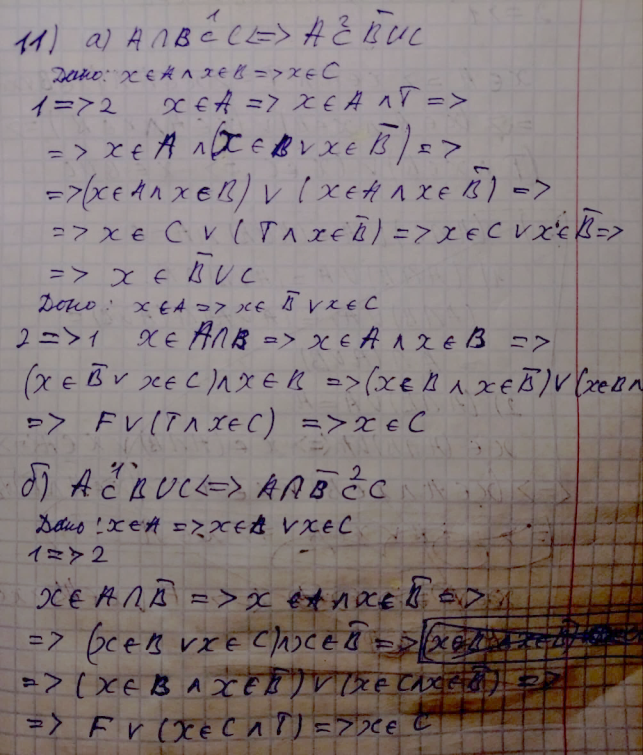 11) а) A∩B ⊂¹ C <=> A ⊂² B̅∪C
Дано: x∈A∧x∈B=>x∈C
1=>2 x∈A => x∈A∧T =>
=> x∈A∧(x∈B∨x∈B̅)=>
=>(x∈A∧x∈B)∨(x∈A∧x∈B̅) =>
=> x∈C∨(T∧x∈B̅)=>x∈C∨x∈B̅=>
=> x∈B̅∪C
Дано: x∈A=>x∈B̅∨x∈C
2=>1 x∈A∩B => x∈A∧x∈B =>
(x∈B̅∨x∈C)∧x∈B =>(x∈B∧x∈B̅)∨(x∈B∧
=> F∨(T∧x∈C) => x∈C
б) A ⊂¹ B∪C <=> A∩B̅ ⊂² C
Дано: x∈A => x∈B∨x∈C
1=>2
x∈A∩B̅ => x∈A∧x∈B̅ =>
=> (x∈B∨x∈C)∧x∈B̅ =>
=> (x∈B∧x∈B̅)∨(x∈C∧x∈B̅) =>
=> F∨(x∈C∧T)=>x∈C